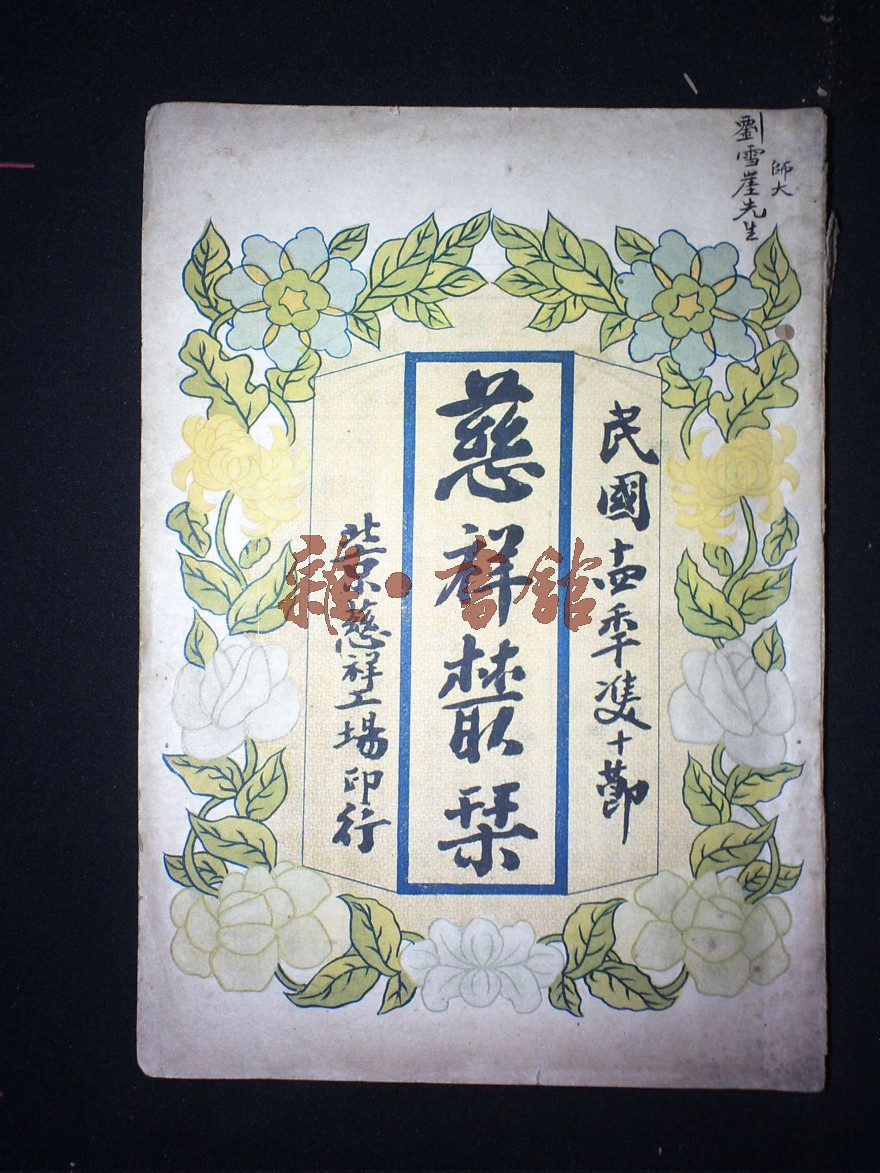 師大
劉雪崖先生
民國十四秊雙十節
慈祥叢栞
北京慈祥工場印行
雜·書館